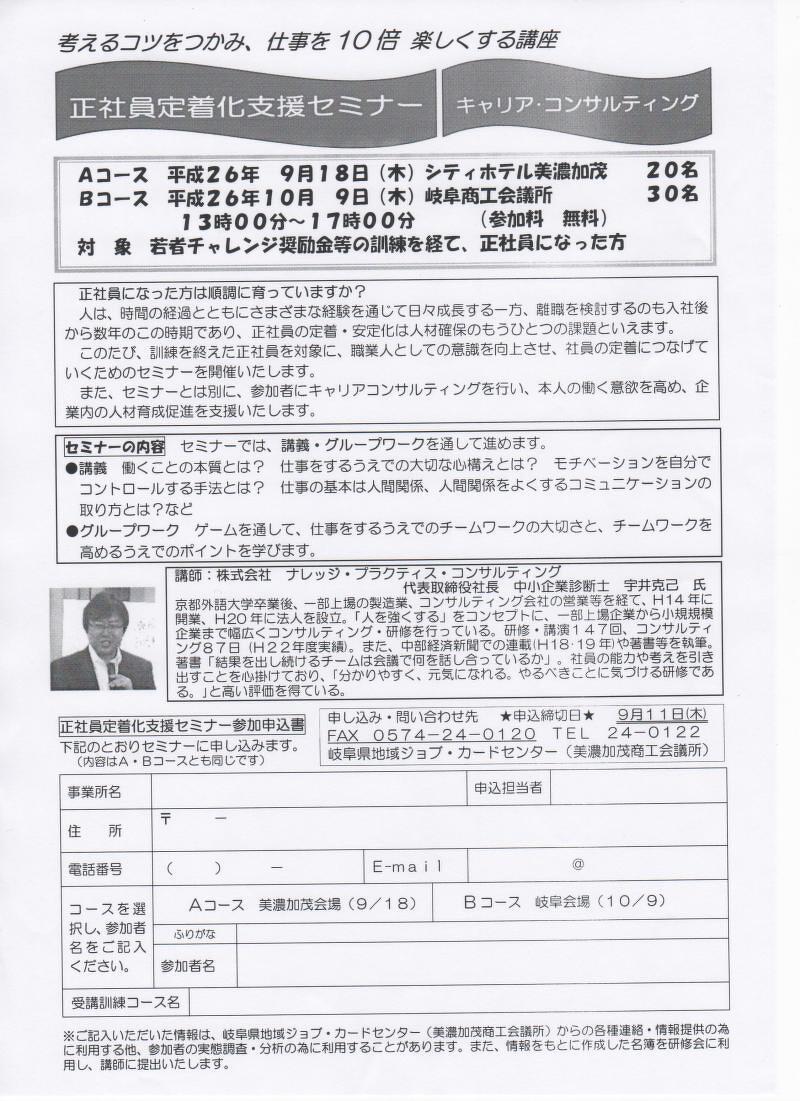 考えるコツをつかみ、仕事を10倍 楽しくする講座
正社員定着化支援セミナー キャリア・コンサルティング
Aコース 平成26年 9月18日(木)シティホテル美濃加茂 20名
Bコース 平成26年10月 9日(木)岐阜商工会議所 30名
13時00分～17時00分 (参加料 無料)
対 象 若者チャレンジ奨励金等の訓練を経て、正社員になった方
正社員になった方は順調に育っていますか?
人は、時間の経過とともにさまざまな経験を通じて日々成長する一方、離職を検討するのも入社後
から数年のこの時期であり、正社員の定着・安定化は人材確保のもうひとつの課題といえます。
このたび、訓練を終えた正社員を対象に、職業人としての意識を向上させ、社員の定着につなげて
いくためのセミナーを開催いたします。
また、セミナーとは別に、参加者にキャリアコンサルティングを行い、本人の働く意欲を高め、企
業内の人材育成促進を支援いたします。
セミナーの内容 セミナーでは、講義・グループワークを通して進めます。
●講義 働くことの本質とは? 仕事をするうえでの大切な心構えとは? モチベーションを自分で
コントロールする手法とは? 仕事の基本は人間関係、人間関係をよくするコミュニケーションの
取り方とは?など
●グループワーク ゲームを通して、仕事をするうえでのチームワークの大切さと、チームワークを
高めるうえでのポイントを学びます。
講師:株式会社 ナレッジ・プラクティス・コンサルティング
代表取締役社長 中小企業診断士 宇井克己 氏
京都外語大学卒業後、一部上場の製造業、コンサルティング会社の営業等を経て、H14年に
開業、H20年に法人を設立。「人を強くする」をコンセプトに、一部上場企業から小規規模
企業まで幅広くコンサルティング・研修を行っている。研修・講演147回、コンサルティ
ング87日(H22年度実績)。また、中部経済新聞での連載(H18・19年)や著書等を執筆。
著書「結果を出し続けるチームは会議で何を話し合っているか」。社員の能力や考えを引き
出すことを心掛けており、「分かりやすく、元気になれる。やるべきことに気づける研修であ
る。」と高い評価を得ている。
正社員定着化支援セミナー参加申込書
下記のとおりセミナーに申し込みます。
(内容はA・Bコースとも同じです)
申し込み・問い合わせ先 ★申込締切日★ 9月11日(木)
FAX 0574-24-0120 TEL 24-0122
岐阜県地域ジョブ・カードセンター(美濃加茂商工会議所)
事業所名 申込担当者
住 所 〒 －
電話番号 ( ) － E-mail @
コースを選
択し、参加者
名をご記入
ください。
Aコース 美濃加茂会場(9/18) Bコース 岐阜会場(10/9)
ふりがな
参加者名
受講訓練コース名
※ご記入いただいた情報は、岐阜県地域ジョブ・カードセンター(美濃加茂商工会議所)からの各種連絡・情報提供の為
に利用する他、参加者の実態調査・分析の為に利用することがあります。また、情報をもとに作成した名簿を研修会に利
用し、講師に提出いたします。